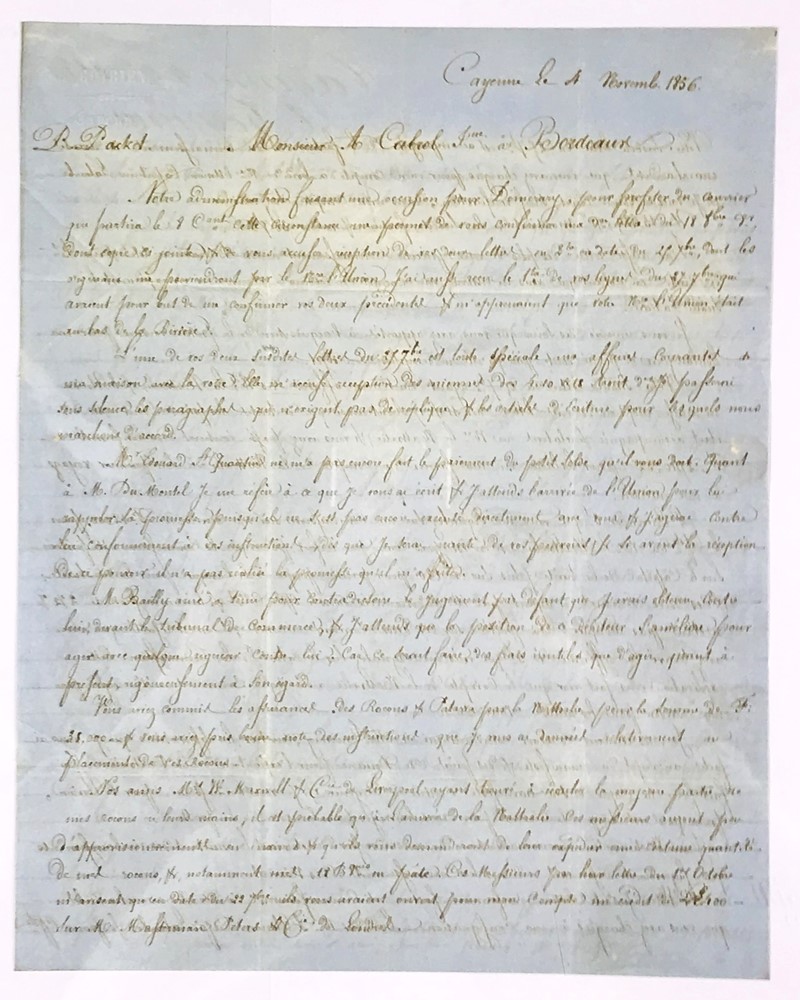 Cayenne Le 4 Novemb. 1856.
P. Packet Monsieur A Cabrol Jne à Bordeaux
Notre administration faisant une occasion pour Demerary, pour profiter du courrier
qui partira le 8 Cant cette circonstance me permet de vous confirmer ma dre lettre du 18 8bre dr,
dont copie ci jointe, & de vous accuser réception de vos deux lettres en date du 27 7bre, dont les
originaux me parviendront par le Nre l'Union. J'ai aussi reçu le de vos lignes du 27 7bre qui
avaient pour but de me confirmer vos deux précédentes & m'apprenaient que votre Nre L'Union était
au bas de la Rivière.
L'une de vos deux susdites lettres du 27 7bre est toute spéciale aux affaires courantes de
ma maison avec la votre. Elle m'accuse réception des miennes des 4, 10 & 18 Août. J'y passerai
sous silence les paragraphes qui n'exigent pas de réplique & les articles d'écriture pour lesquels nous
marchons d'accord.
Mr Edouard St Quantin ne m'a pas encore fait le paiement du petit solde qu'il vous doit. Quant
à M. Du Montel Je me réfère à ce que Je vous ai écrit & J'attends l'arrivée de l'Union pour lui
rappeler sa promesse, puisqu'il ne s'est pas encore exécuté directement avec vous & J'agirai contre
lui conformément à vos instructions, dès que Je serai nanti de vos pouvoirs, si avant la réception
de ce pouvoir il n'a pas réalisé la promesse qu'il m'a faite.
M. Bailly ainé a tenu pour contradictoire le Jugement par défaut que J'avais obtenu contre
lui, devant le tribunal de Commerce, & J'attends que la position de ce débiteur s'améliore pour
agir avec quelque rigueur contre lui; Car ce serait faire des frais inutiles que d'agir, quant à
présent, rigoureusement à son égard.
Vous avez commis les assurances des Rocous & Tafias par la Nathalie pour la somme de F.
38.000 & vous avez pris bonne note des instructions que Je vous ai données relativement au
placement de ces Rocous.
Nos amis Mrs W. Maxwell & Cie de Liverpool ayant trouvé à écouler la majeure partie de
mes rocous en leurs mains, il est probable qu'à l'arrivée de la Nathalie ces messieurs auront peu
d'approvisionnement en mains & qu'ils vous demanderont de leur expédier une certaine quantité
de mes rocous, & notamment mes 18 en pâte. Ces Messieurs par leur lettre du 1er Octobre
m'annoncent qu'en date du 22 7bre ils vous avaient ouvert pour mon Compte un crédit de L
sur M. Masterman Peters & Cie de Londres.